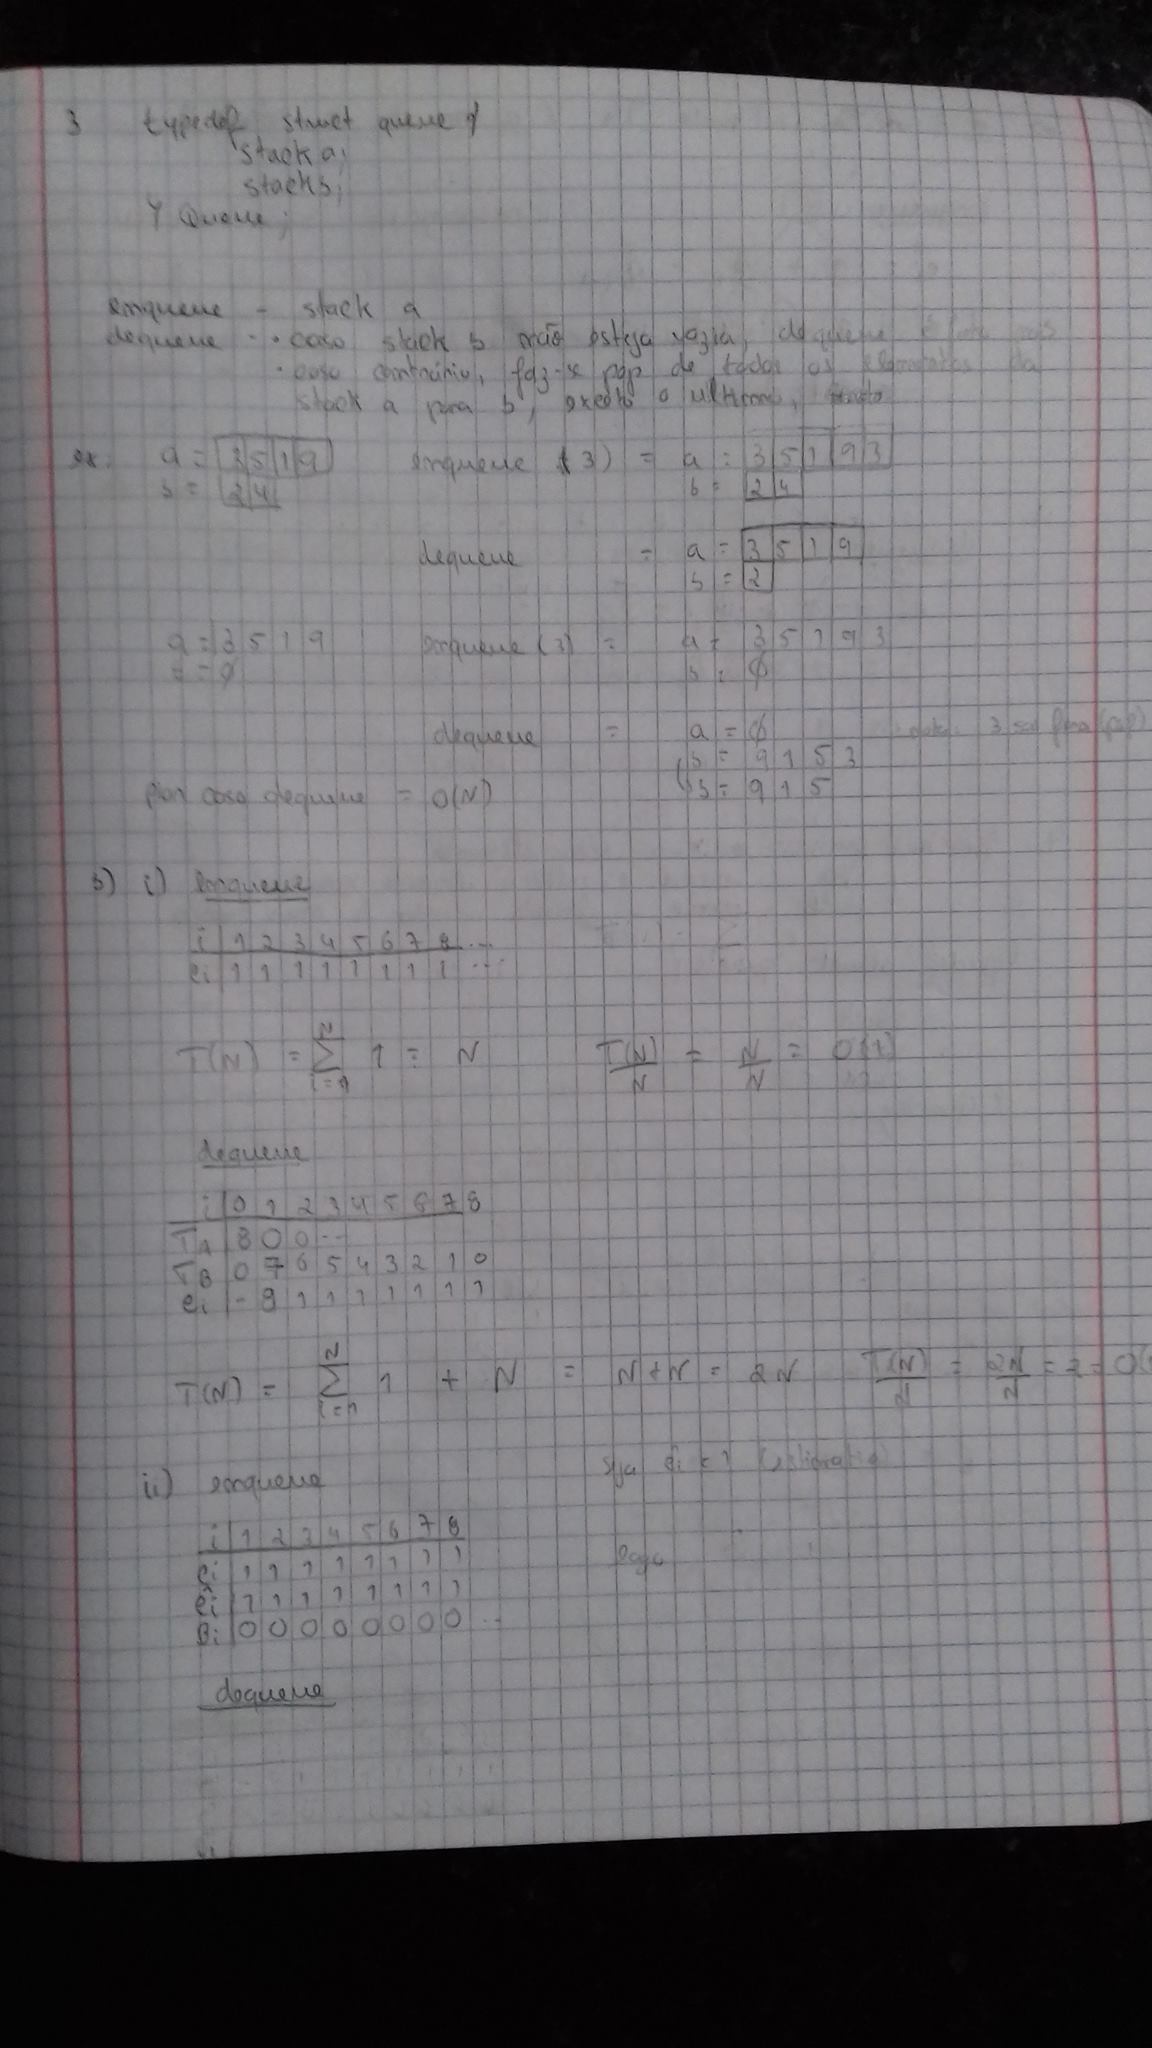 3 typedef struct queue {
stack a;
stack b;
} Queue;
enqueue - stack a
dequeue - • caso stack b não esteja vazia, dequeue é
• caso contrário, faz-se pop de todos os elementos da
stack a para b, exceto o ultimo,
ex: a = 3 5 1 9 enqueue (3) = a = 3 5 1 9 3
b = 2 4 b = 2 4
dequeue = a = 3 5 1 9
b = 2
a = 3 5 1 9 enqueue (3) = a = 3 5 1 9 3
b = ∅ b = ∅
dequeue = a = ∅ 3 (pop)
b = 9 1 5 3
b = 9 1 5
pior caso dequeue = O(N)
b) i) enqueue
i 1 2 3 4 5 6 7 8 ...
ci 1 1 1 1 1 1 1 1 ...
T(N) = Σ i=1 N 1 = N T(N)/N = N/N = O(1)
dequeue
i 0 1 2 3 4 5 6 7 8
TA 8 0 0 ...
TB 0 7 6 5 4 3 2 1 0
ci - 9 1 1 1 1 1 1 1
T(N) = Σ i=1 N 1 + N = N+N = 2N T(N)/N = 2N/N = 2 = O(
ii) enqueue seja
i 1 2 3 4 5 6 7 8
ci 1 1 1 1 1 1 1 1
ĉi 1 1 1 1 1 1 1 1
Bi 0 0 0 0 0 0 0 0 ...
dequeue